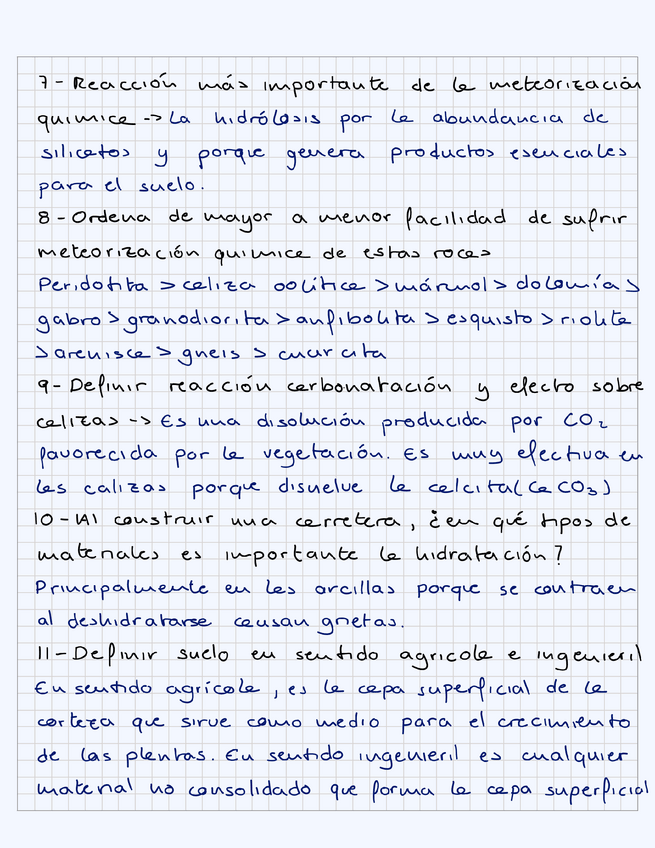 7- Reacción más importante de la meteorización
química -> La hidrólisis por la abundancia de
silicatos y porque genera productos esenciales
para el suelo.
8- Ordena de mayor a menor facilidad de sufrir
meteorización química de estas rocas
Peridotita > caliza oolítica > mármol > dolomía >
gabro > granodiorita > anfibolita > esquisto > riolita
> arenisca > gneis > cuarcita
9- Definir reacción carbonatación y efecto sobre
calizas -> Es una disolución producida por CO₂
favorecida por la vegetación. Es muy efectiva en
las calizas porque disuelve la calcita (CaCO₃)
10- Al construir una carretera, ¿en qué tipos de
materiales es importante la hidratación?
Principalmente en las arcillas porque se contraen
al deshidratarse causan grietas.
11- Definir suelo en sentido agrícola e ingenieril
En sentido agrícola, es la capa superficial de la
corteza que sirve como medio para el crecimiento
de las plantas. En sentido ingenieril es cualquier
material no consolidado que forma la capa superficial